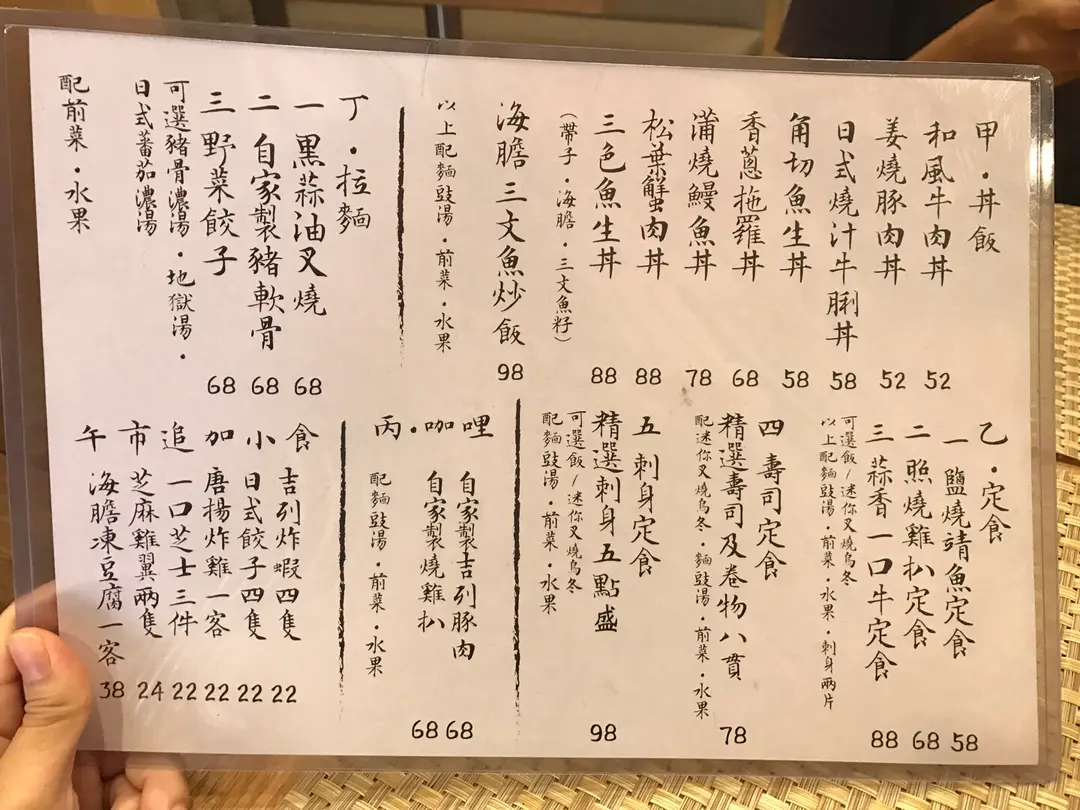 甲·丼飯
和風牛肉丼 52
姜燒豚肉丼 52
日式燒汁牛脷丼 58
角切魚生丼 58
香蔥拖羅丼 68
蒲燒鰻魚丼 78
松葉蟹肉丼 88
三色魚生丼 88
(帶子·海膽·三文魚籽)
海膽三文魚炒飯 98
以上配麵豉湯·前菜·水果
丁·拉麵
一 黑蒜油叉燒 68
二 自家製豬軟骨 68
三 野菜餃子 68
可選豬骨濃湯·地獄湯·
日式蕃茄濃湯
配前菜·水果
乙·定食
一 鹽燒鯖魚定食 58
二 照燒雞扒定食 68
三 蒜香一口牛定食 88
可選飯/迷你叉燒烏冬
以上配麵豉湯·前菜·水果·刺身兩片
四 壽司定食
精選壽司及卷物八貫 78
配迷你叉燒烏冬·麵豉湯·前菜·水果
五 刺身定食
精選刺身五點盛 98
可選飯/迷你叉燒烏冬
配麵豉湯·前菜·水果
丙·咖哩
自家製吉列豚肉 68
自家製燒雞扒 68
配麵豉湯·前菜·水果
午市追加小食
吉列炸蝦四隻 22
日式餃子四隻 22
唐揚炸雞一客 22
一口芝士三件 22
芝麻雞翼兩隻 24
海膽凍豆腐一客 38